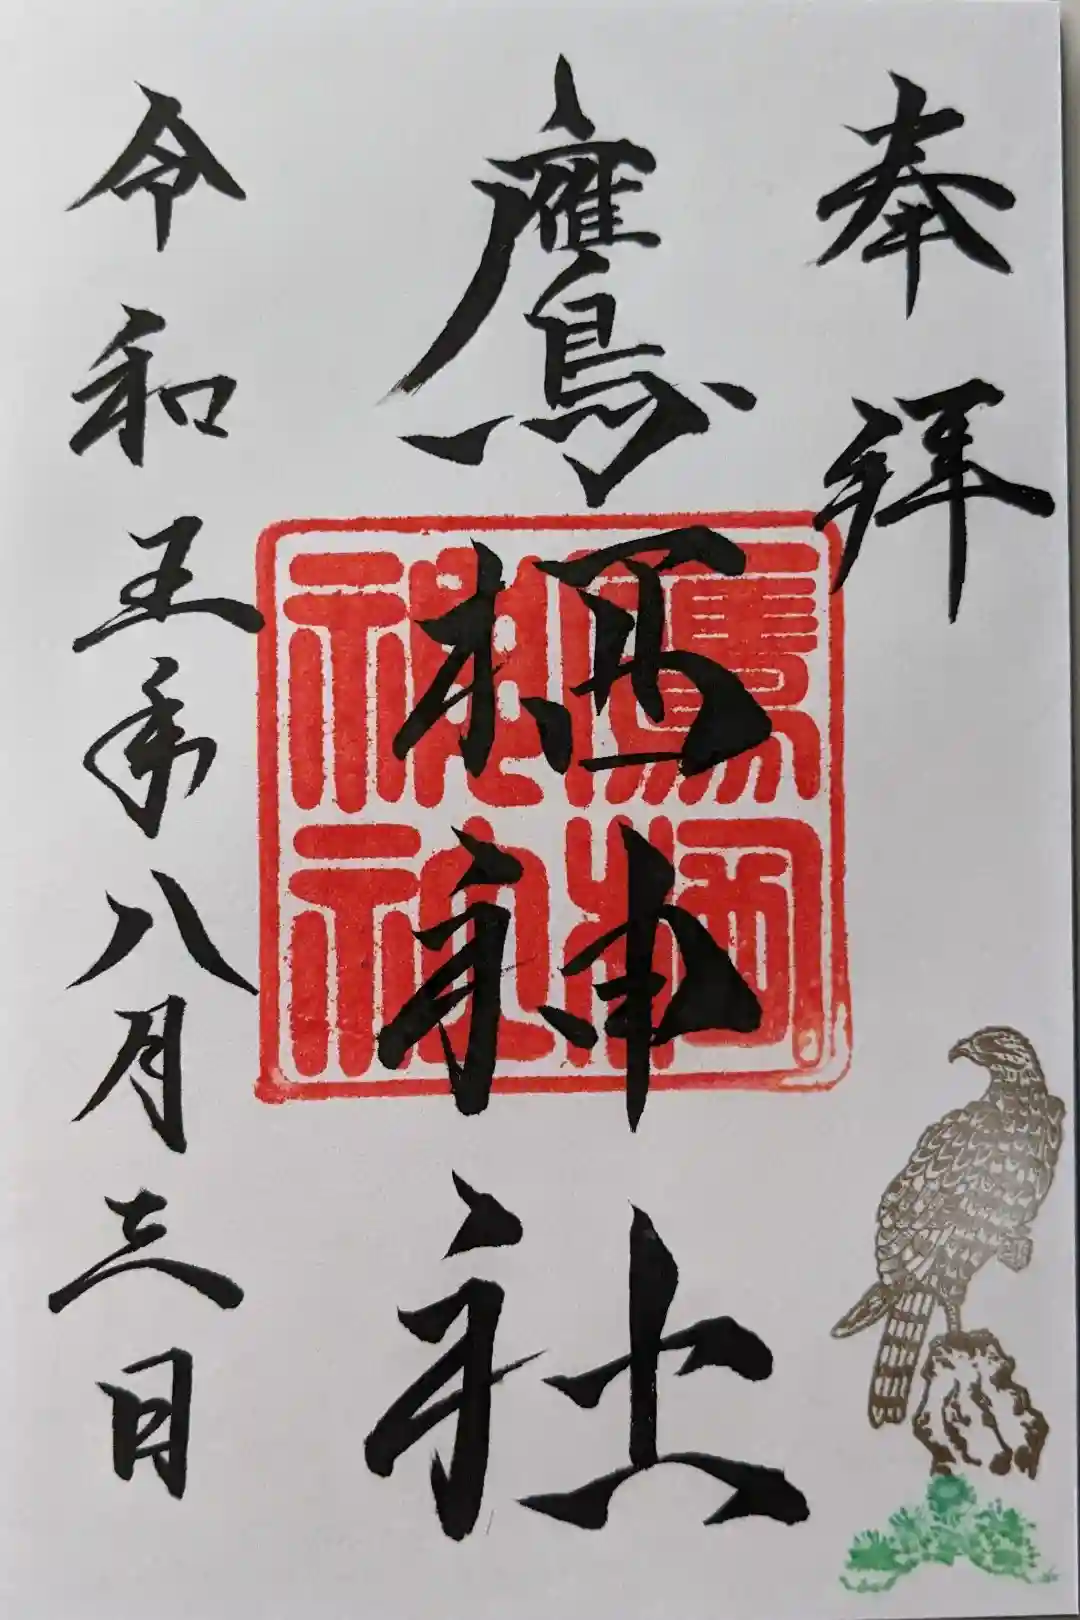 奉拝
鷹栖神社
令和五年八月三日
鷹栖
神社